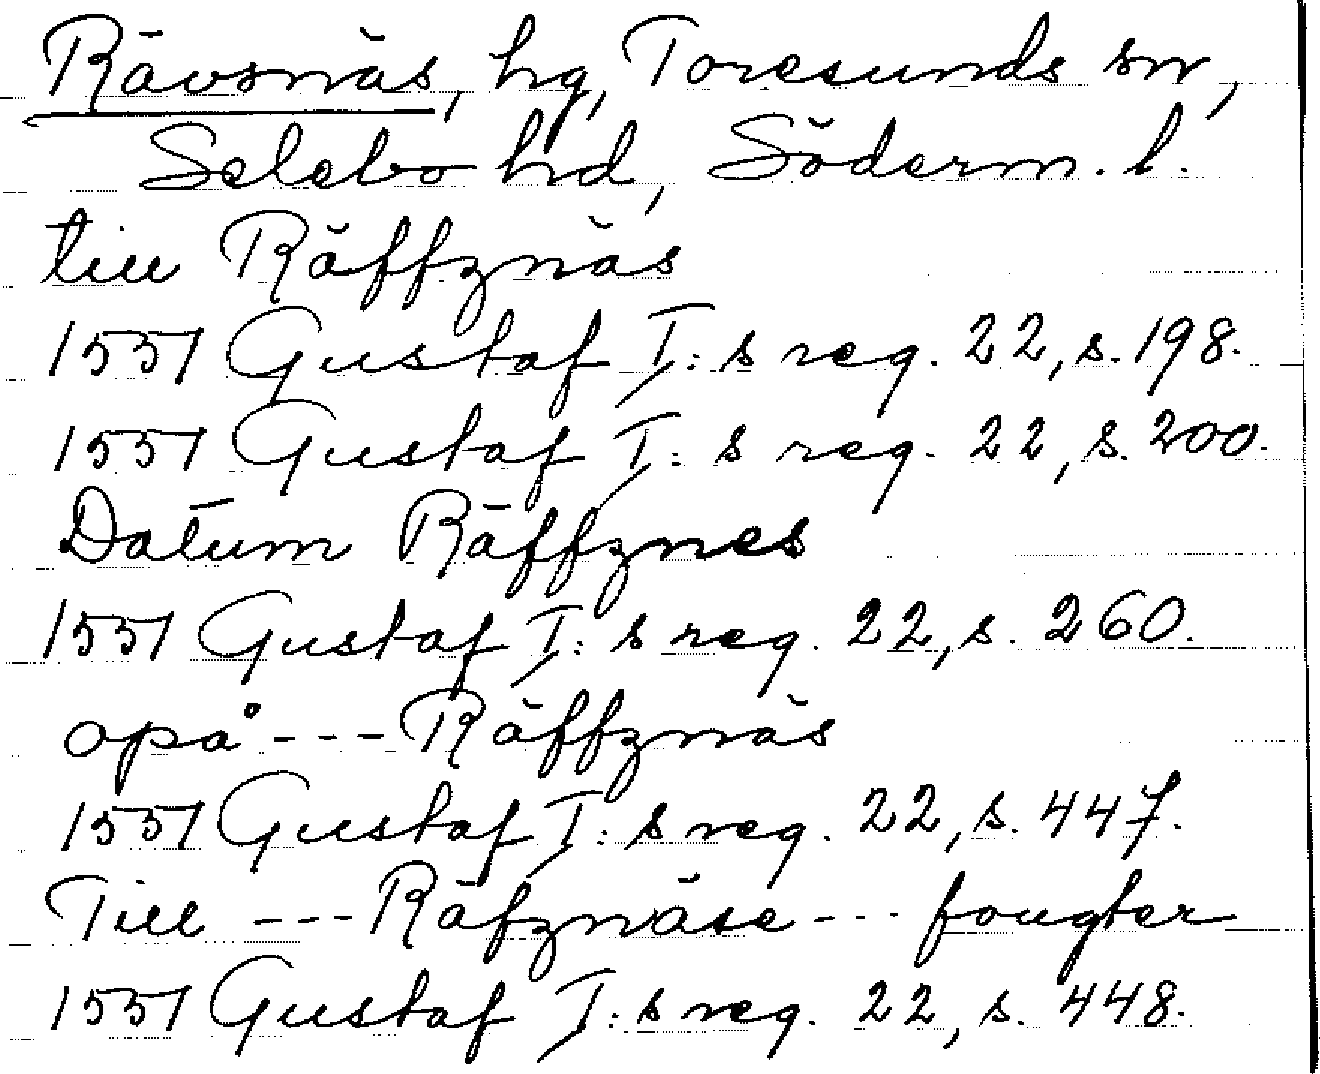 Rävsnäs, hg, Toresunds sn,
Selebo hd, Söderm. l.
till Räffznäs
1551 Gustaf I:s reg. 22, s. 198.
1551 Gustaf I:s reg. 22, s. 200.
Datum Räffznes
1551 Gustaf I:s reg. 22, s. 260.
opå --- Räffznäs
1551 Gustaf I:s reg. 22, s. 447.
Till --- Räfznäse --- fougter
1551 Gustaf I:s reg. 22, s. 448.